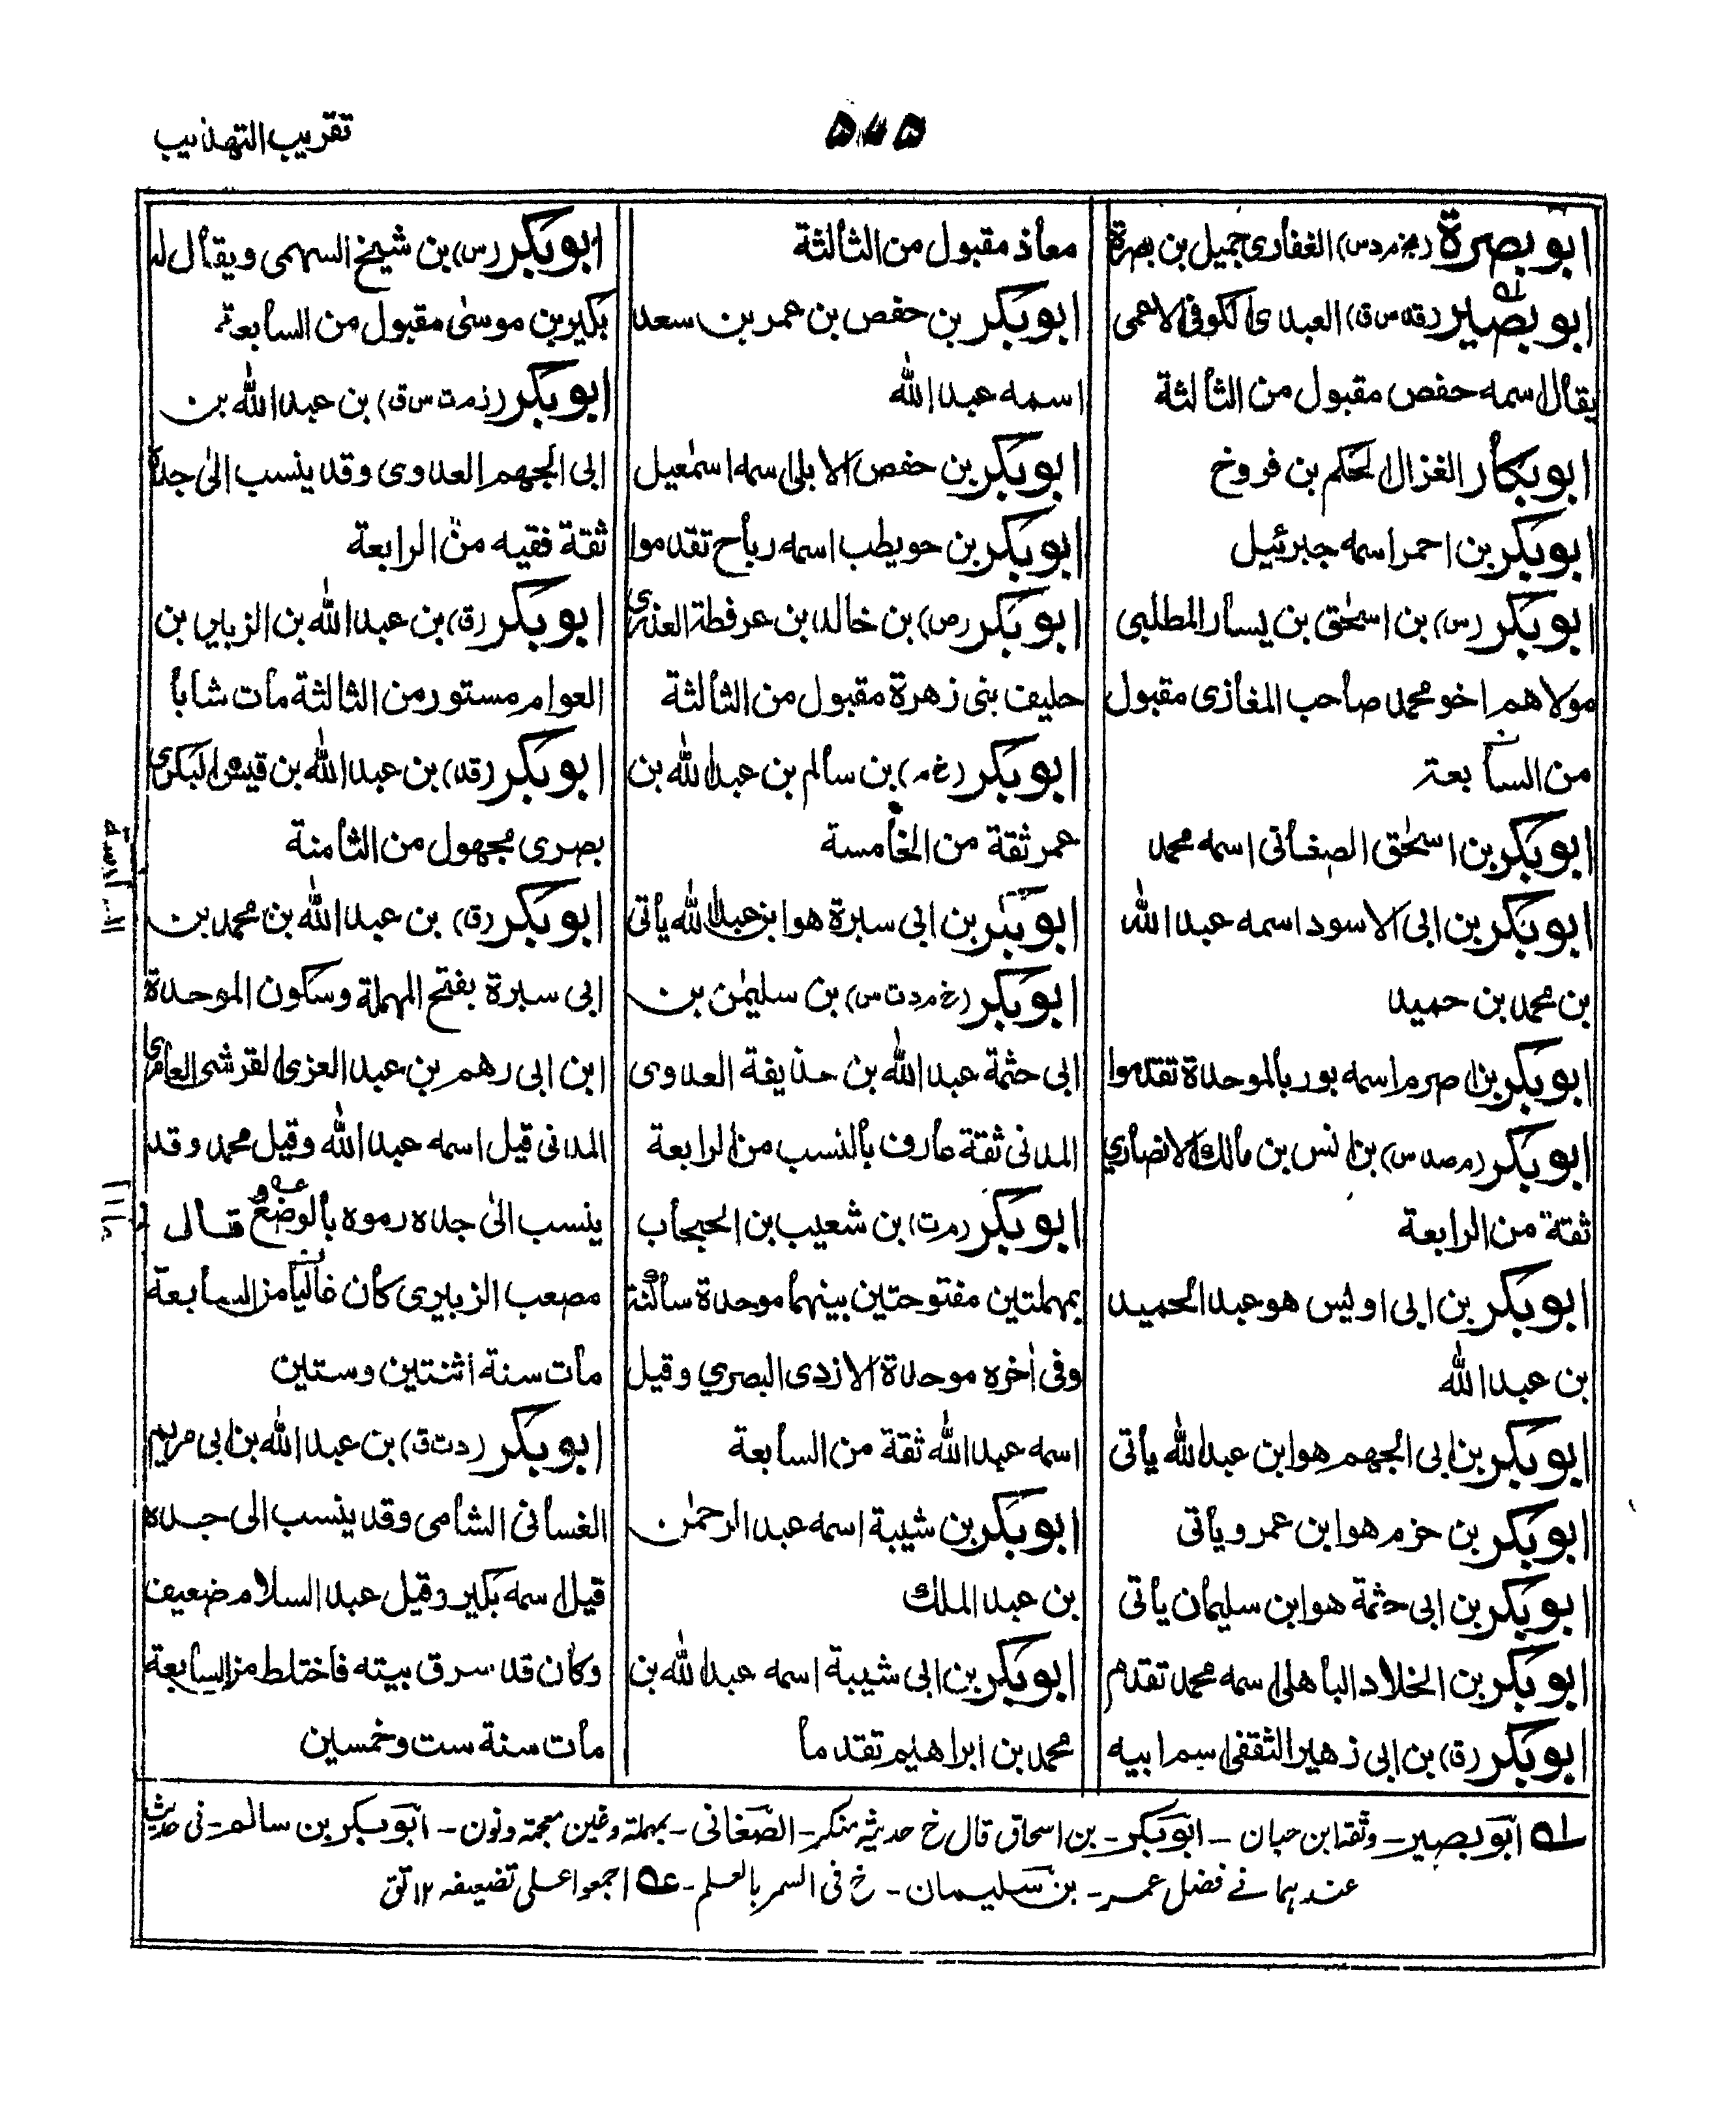 تقريب التهذيب
ابو بصرة (بخ م د س) الغفاري جميل بن بصرة
ابو بصير (قد س ق) العبدي الكوفي الاعمى
يقال اسمه حفص مقبول من الثالثة
ابو بكار الغزال الحكم بن فروخ
ابو بكر بن احمر اسمه جبرئيل
ابو بكر (س) بن اسحٰق بن يسار المطلبي
مولاهم اخو محمد صاحب المغازى مقبول
من السابعة
ابو بكر بن اسحٰق الصغاني اسمه محمد
ابو بكر بن ابى الاسود اسمه عبد الله
بن محمد بن حميد
ابو بكر بن اصرم اسمه بور بالموحدة تقدموا
ابو بكر (م صد س) بن انس بن مالك الانصاري
ثقة من الرابعة
ابو بكر بن ابى اويس هو عبد الحميد
بن عبد الله
ابو بكر بن ابى الجهم هو ابن عبد الله يأتى
ابو بكر بن حزم هو ابن عمرو يأتى
ابو بكر بن ابى حثمة هو ابن سليمان يأتى
ابو بكر بن الخلاد الباهلى اسمه محمد تقدم
ابو بكر (ق) بن ابى زهير الثقفى اسم ابيه
معاذ مقبول من الثالثة
ابو بكر بن حفص بن عمر بن سعد
اسمه عبد الله
ابو بكر بن حفص الابلى اسمه اسمٰعيل
ابو بكر بن حويطب اسمه رباح تقدموا
ابو بكر (ص) بن خالد بن عرفطة العذري
حليف بنى زهرة مقبول من الثالثة
ابو بكر (خ م) بن سالم بن عبد الله بن
عمر ثقة من الخامسة
ابو بكر بن ابى سبرة هو ابن عبد الله يأتى
ابو بكر (خ م د ت س) بن سليمٰن بن
ابى حثمة عبد الله بن حذيفة العدوى
المدنى ثقة عارف بالنسب من الرابعة
ابو بكر (م ت) بن شعيب بن الحبحاب
بمهملتين مفتوحتين بينهما موحدة ساكنة
وفى اٰخره موحدة الازدى البصري وقيل
اسمه عبد الله ثقة من السابعة
ابو بكر بن شيبة اسمه عبد الرحمٰن
بن عبد الملك
ابو بكر بن ابى شيبة اسمه عبد الله بن
محمد بن ابراهيم تقدما
ابو بكر (س) بن شيخ السهمى ويقال له
بكير بن موسىٰ مقبول من السابعة
ابو بكر (ز م ت س ق) بن عبد الله بن
ابى الجهم العدوى وقد ينسب الىٰ جده
ثقة فقيه من الرابعة
ابو بكر (ق) بن عبد الله بن الزبير بن
العوام مستور من الثالثة مات شابا
ابو بكر (قد) بن عبد الله بن قيس البكري
بصرى مجهول من الثامنة
ابو بكر (ق) بن عبد الله بن محمد بن
ابى سبرة بفتح المهملة وسكون الموحدة
ابن ابى رهم بن عبد العزى القرشى العامري
المدنى قيل اسمه عبد الله وقيل محمد وقد
ينسب الىٰ جده رموه بالوضع وقال
مصعب الزبيرى كان عالما من السابعة
مات سنة اثنتين وستين
ابو بكر (د ت ق) بن عبد الله بن ابى مريم
الغسانى الشامى وقد ينسب الى جده
قيل اسمه بكير وقيل عبد السلام ضعيف
وكان قد سرق بيته فاختلط من السابعة
مات سنة ست وخمسين
ابو بصير - وثقه ابن حبان - ابو بكر - بن اسحاق قال خ حديثه منكر - الصغانى - بمهملة وغين معجمة ونون - ابو بكر بن سالم - فى حديث
عندهما في فضل عمر - بن سليمان - خ فى السمر بالعلم - اجمعوا على تضعيفه ١٢